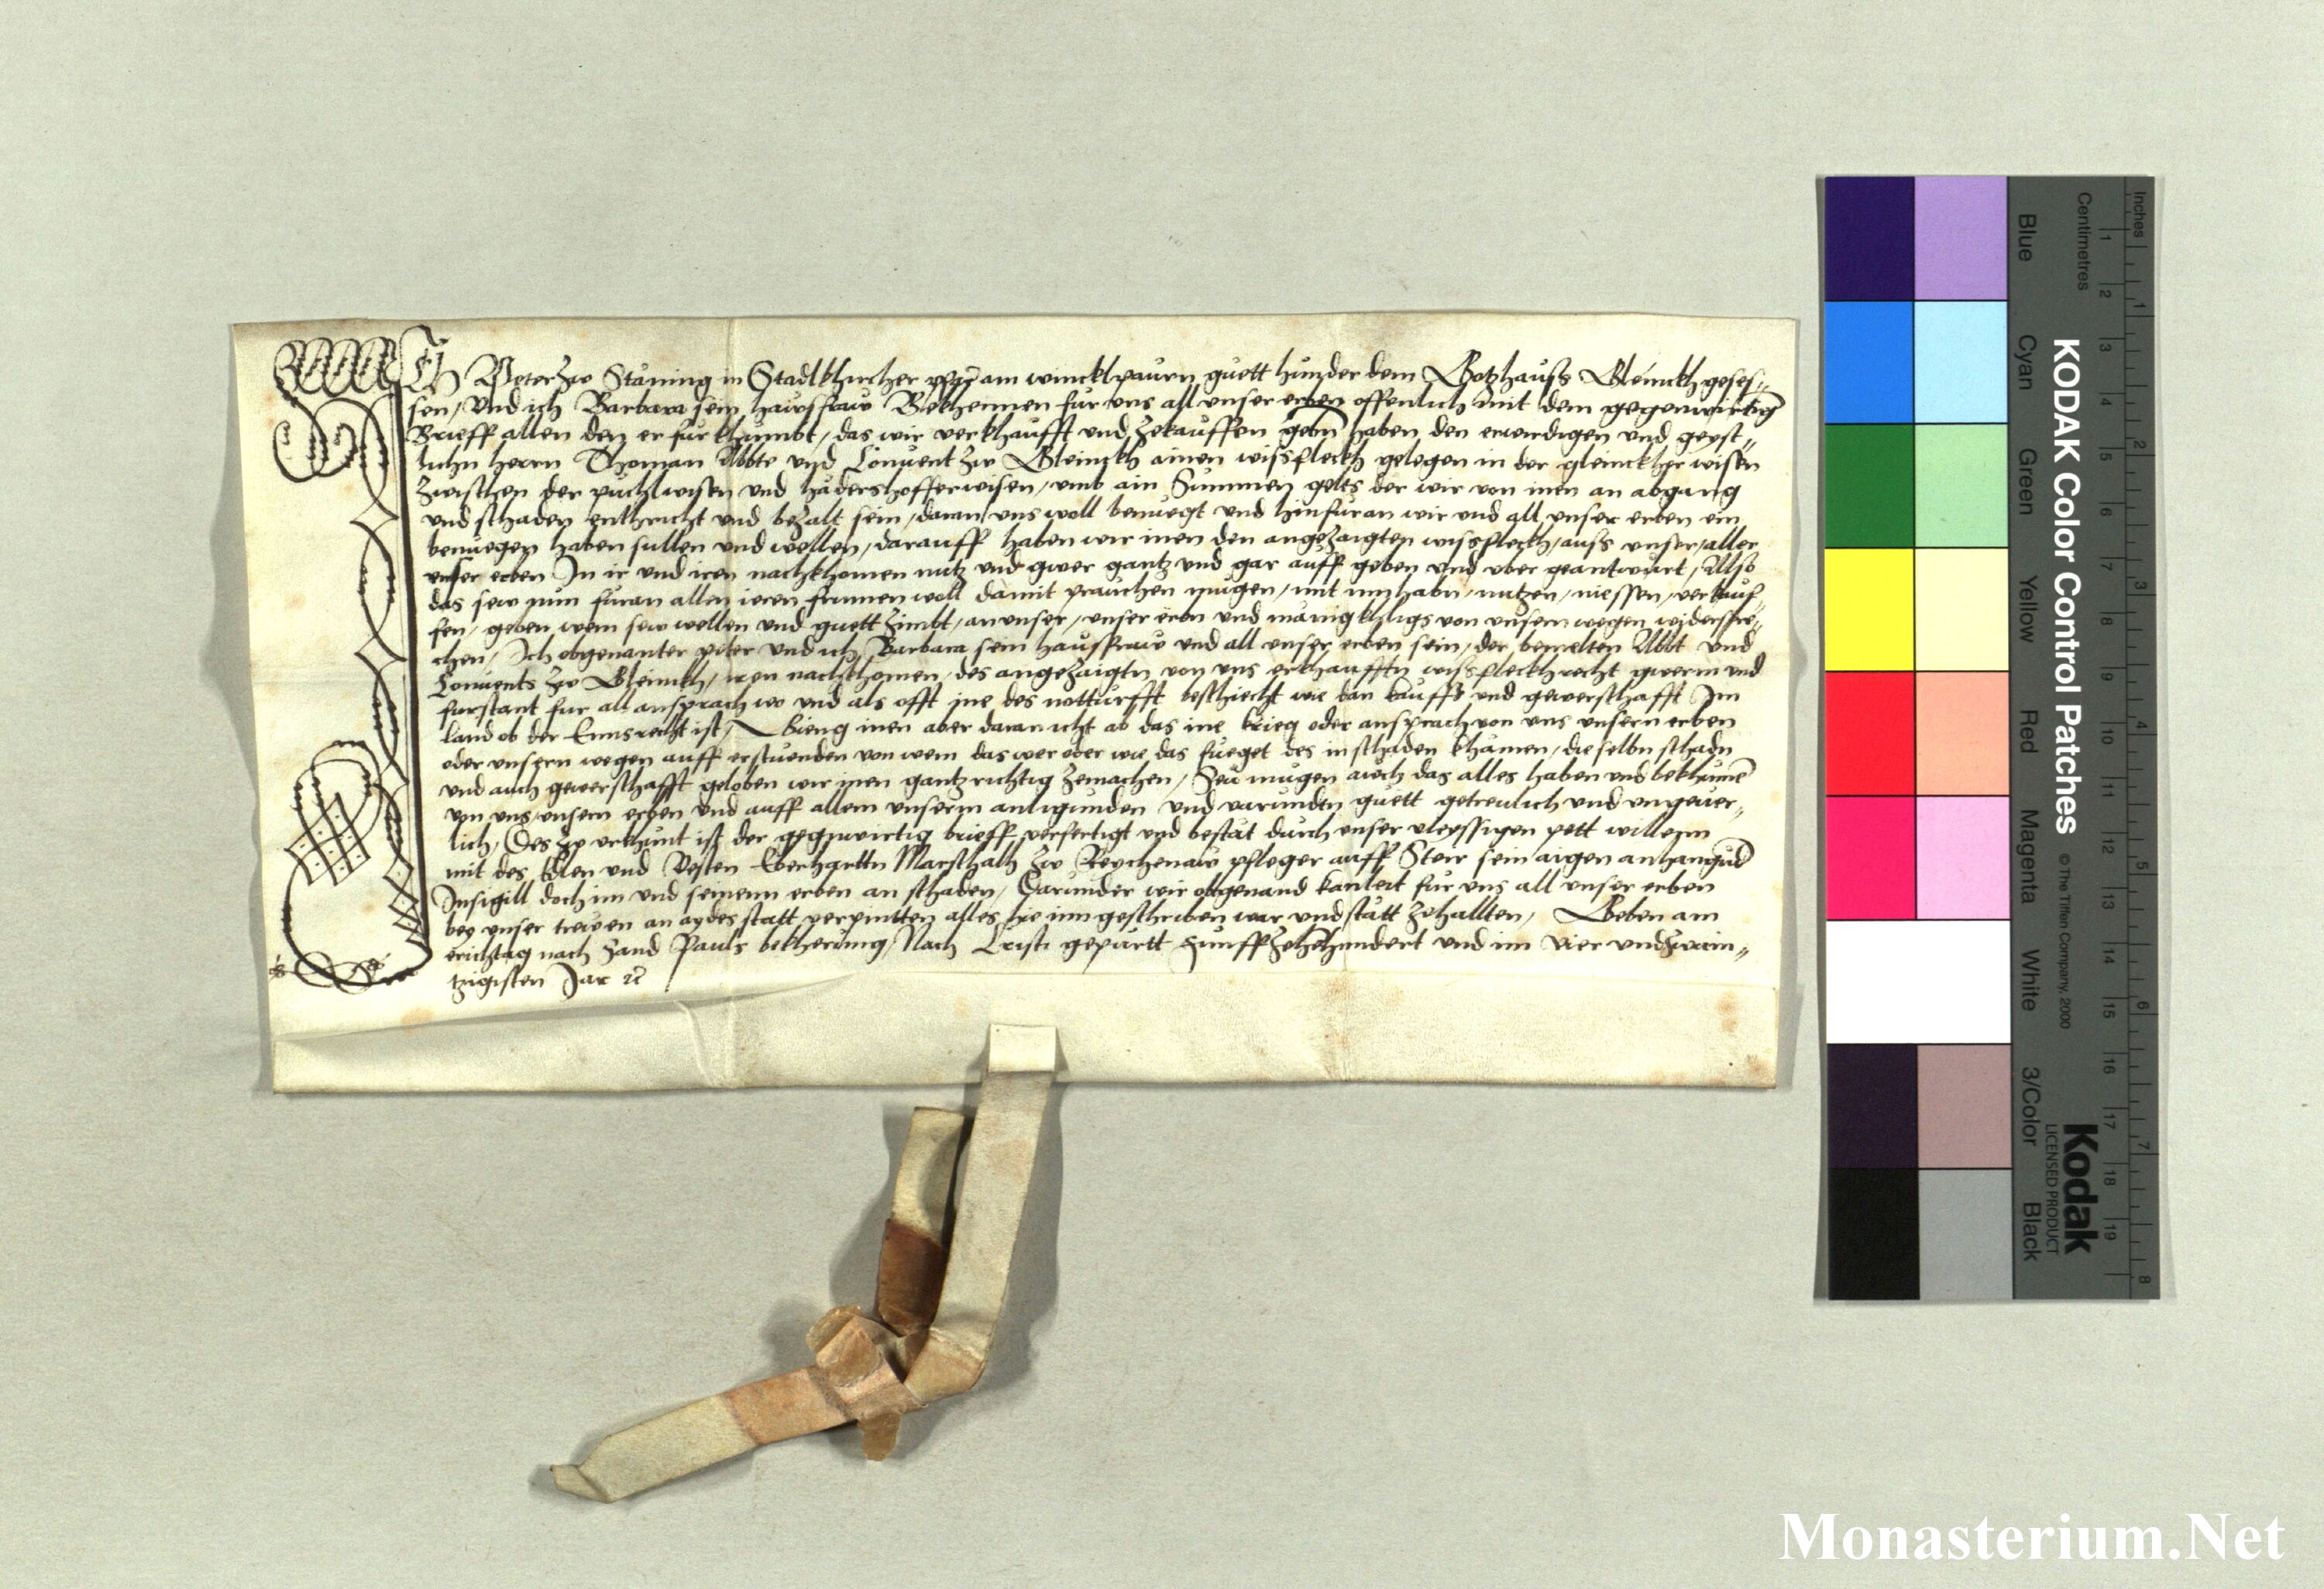 Ich Peter zw Stäning in Stadlkhircher pfarr am wincklpaurn guett hunder dem Gotzhauss Gleinckh geses-
sen, Vnd ich Barbara sein hawsfraw Bekhennen fur vns all vnser erben offenlich mit dem gegenwirtig
Brieff allen den er fur khumbt, das wir verkhaufft vnd zekauffen gebn haben den erwirdigen vnd geyst-
lichn herrn Thoman Abbte vnd Conuent zw Gleinckh ainen wissfleckh gelegen in der gleinckher wisen
zwischen der puchlwisen vnd hädershofferwisen, vmb ain Summen gelts der wir von inen an abgang
vnd schaden enthricht vnd bezalt sein, daran vns woll benuegt vnd hinfuran wir vnd all vnser erben ein
benuegen haben sullen vnd wellen, darauff haben wir inen den angezaigten wissfleckh, auss vnser, aller
vnser erben In ir vnd iren nachkhomen nutz vnd gwer gantz vnd gar auff geben vnd vber geantwurt, Also
das sew nun furan allen ieren frumen woll damit prauchen mugen, mit innhabn, nutzen, niessen, verkauf-
fen, geben wem sew wellen vnd guett zimbt, an vnser, vnser erbn vnd mänigkhligs von vnsern wegen widerspre-
chen, Ich obgenanter peter vnd ich Barbara sein hausfraw vnd all vnser erben sein, der bemelten Abbt vnd
Conuents zw Gleinckh, iren nachkhomen, des angezaigtn von vns erkhaufftn wissfleckh recht gwern vnd
furstant fur all ansprach wo vnd als offt ine des notturfft beschiecht wie dan kauffs vnd gewerschafft Im
land ob der Enns recht ist, Gieng inen aber daran icht ab das ine krieg oder ansprach von vns vnsern erben
oder vnsern wegen auff erstuenden von wem das wer oder wie das fueget des in schaden khämen, die selbn schadn
vnd auch gewerschafft geloben wir inen gantz richtig zemachen, Seü mugen auch das alles haben vnd bekhumen
von vns, vnsern erben vnd auff allem vnserm anligunden vnd varundtn guett getreulich vnd vngeuer-
lich, Des zw vrkhunt ist der gegnwirtig brieff verfertigt vnd bestät durch vnser vleyssigen pett willenn
mit des Edlen vnd Vesten Eberharttn Marschalh zw Reychenaw pfleger auff Steir sein aigen anhangund
Insigill doch im vnd seinenn erben an schaden, Darunder wir obgenand kanleit fur vns all vnser erben
bey vnser trewen an aydes statt verpintten alles hie inn geschriben war vnd statt zehallten, Geben am
erichtag nach Sand Pauls bekherung, Nach Cristi gepurtt Funffzehehundert vnd im Vier vnd zwain-
tzigisten Jar ec
KODAK Color Control Patches
© The Tiffen Company, 2000
Kodak
LICENSED PRODUCT
Inches
1 2 3 4 5 6 7 8
Centimetres
1 2 3 4 5 6 7 8 9 10 11 12 13 14 15 16 17 18 19
Blue Cyan Green Yellow Red Magenta White 3/Color Black
Monasterium.Net